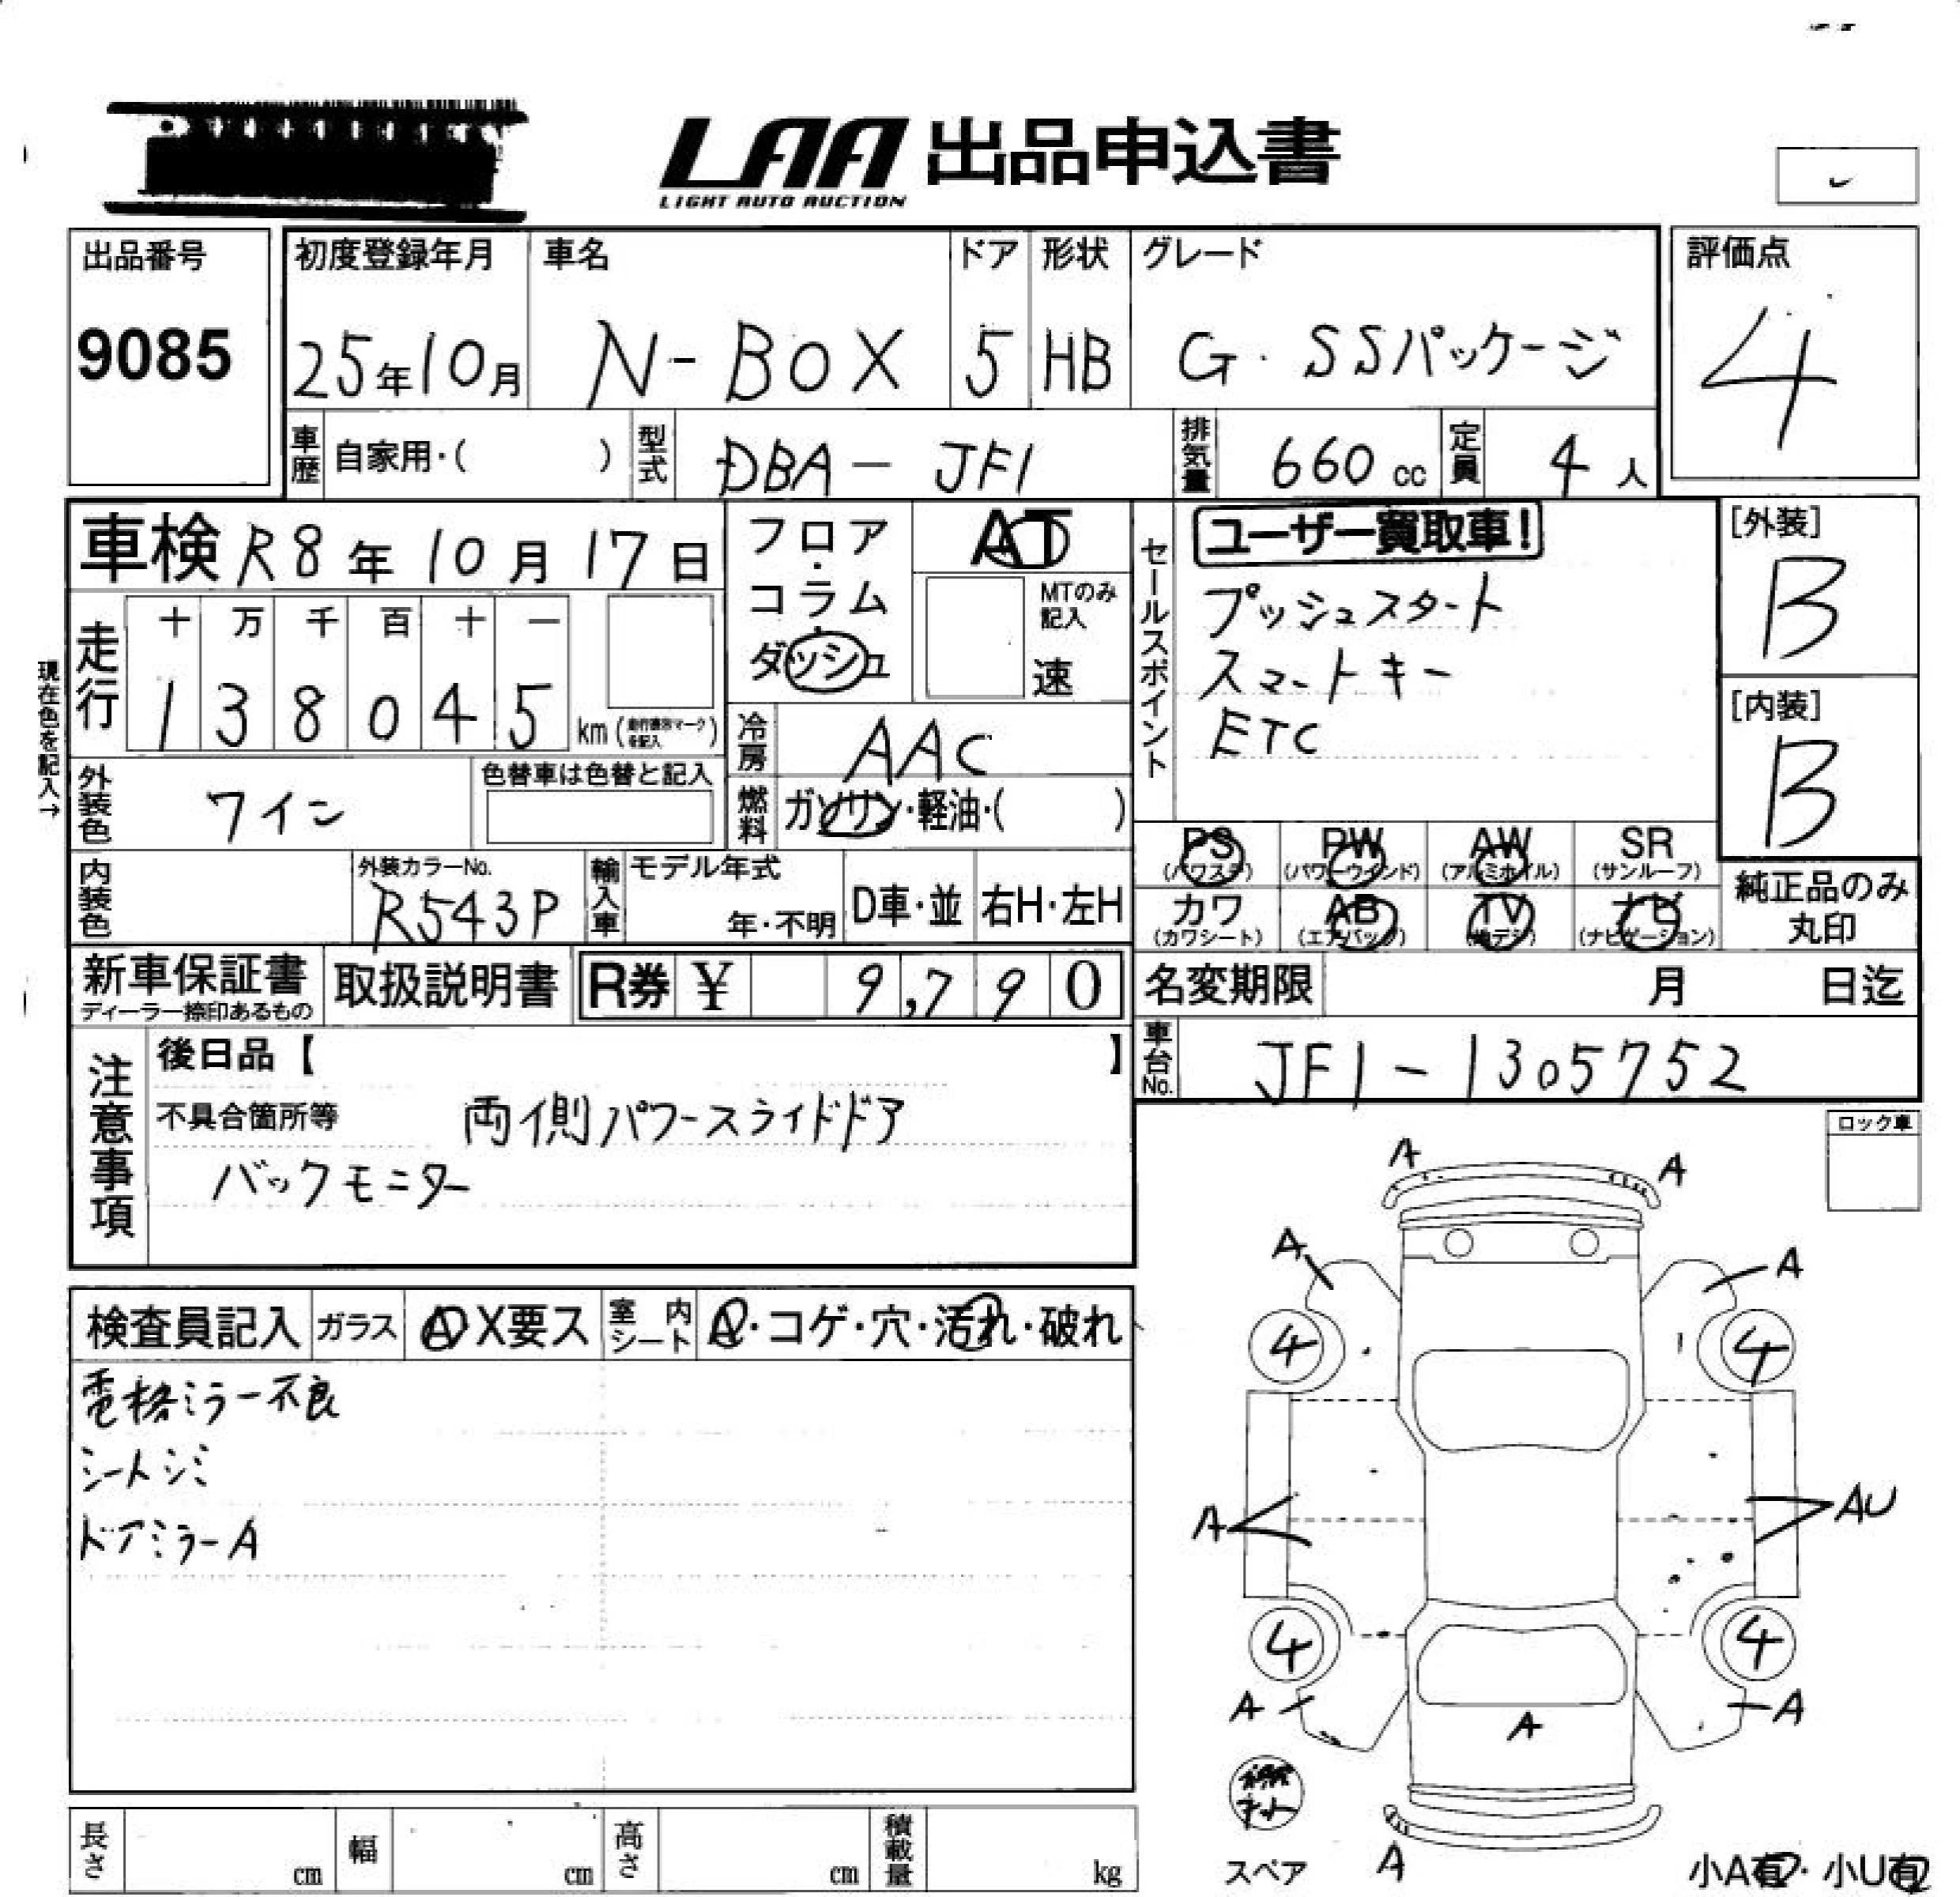 LAA 出品申込書
LIGHT AUTO AUCTION
出品番号
9085
初度登録年月 車名 ドア 形状 グレード
25年10月 N-BOX 5 HB G・SSパッケージ
評価点
4
車歴 自家用・( ) 型式 DBA-JF1 排気量 660cc 定員 4人
車検 R8年10月17日
フロア・コラム・ダッシュ
AT
MTのみ記入
速
セールスポイント
ユーザー買取車!
プッシュスタート
スマートキー
ETC
[外装]
B
[内装]
B
現在色を記入→
走行
十 万 千 百 十 一
1 3 8 0 4 5 km
冷房 AAC
外装色 ワイン
色替車は色替と記入
燃料 ガソリン・軽油・( )
PS(パワステ) PW(パワーウインド) AW(アルミホイル) SR(サンルーフ)
カワ(カワシート) AB(エアバッグ) TV(地デジ) ナビ(ナビゲーション)
純正品のみ丸印
内装色
外装カラーNo.
R543P
輸入車 モデル年式
年・不明 D車・並 右H・左H
新車保証書
ディーラー捺印あるもの
取扱説明書
R券 ¥ 9,790
名変期限 月 日迄
車台No. JF1-1305752
注意事項
後日品【 】
不具合箇所等 両側パワースライドドア
バックモニター
ロック車
検査員記入 ガラス A X要ス 室内シート A・コゲ・穴・汚れ・破れ
電格ミラー不良
シートシミ
ドアミラーA
A
A
A
A
4
4
A
AU
4
4
A
A
A
スペア
A
小A有・小U有
長さ cm 幅 cm 高さ cm 積載量 kg